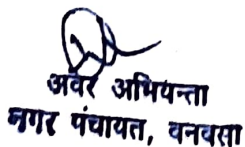 अवर अभियन्ता
नगर पंचायत, वनवसा